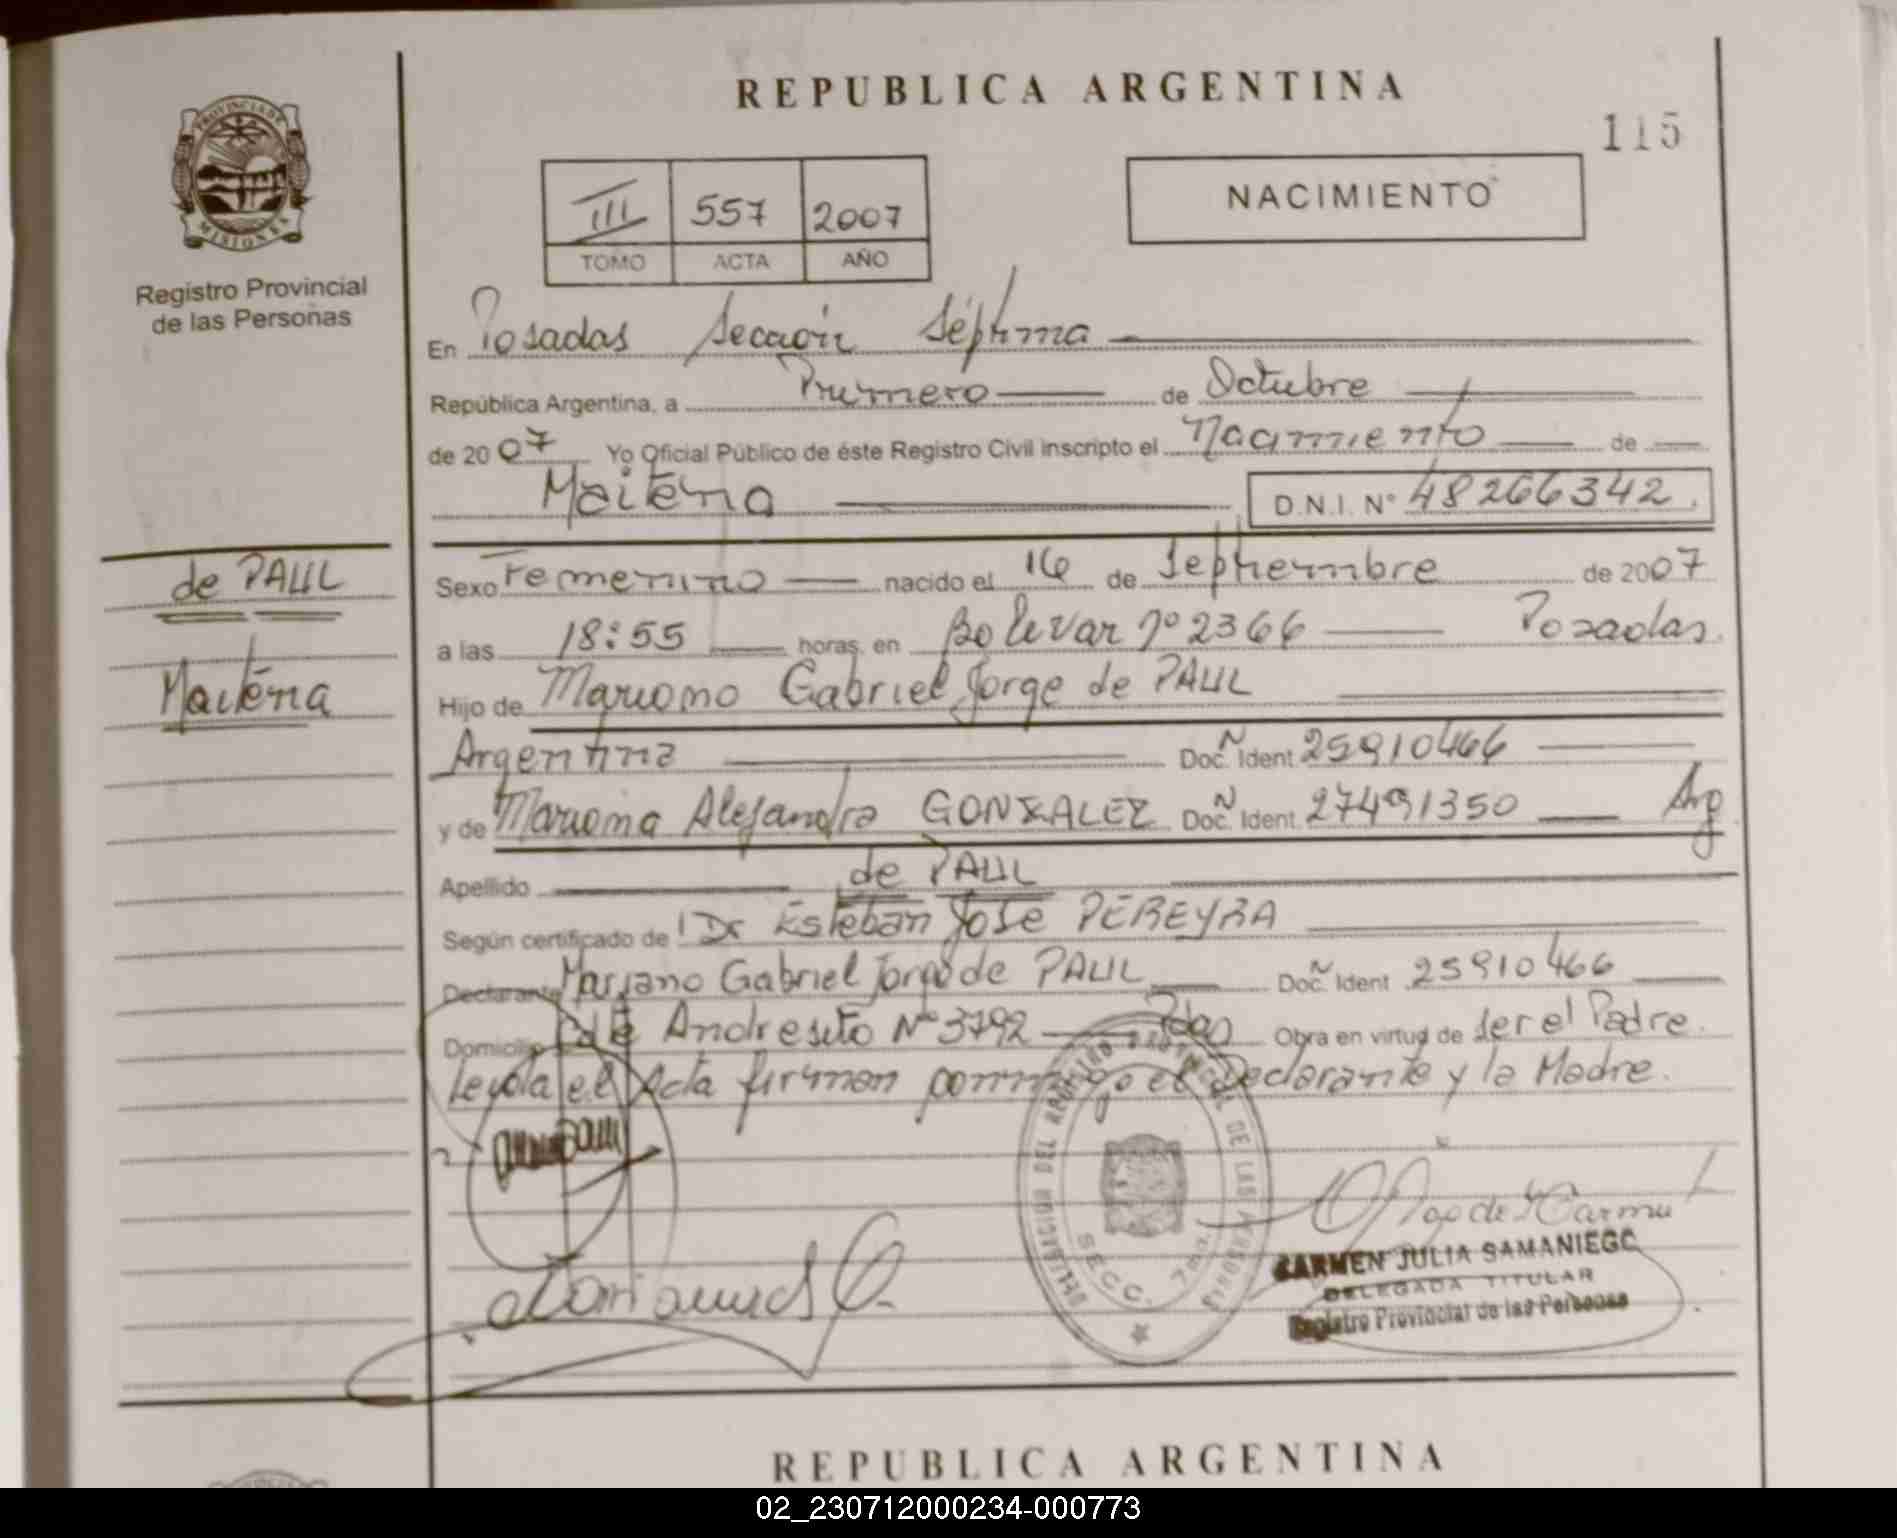 REPUBLICA ARGENTINA
115
PROVINCIA DE
MISIONES
Registro Provincial
de las Personas
III 557 2007
TOMO ACTA AÑO
NACIMIENTO
En Posadas Sección Séptima
República Argentina, a Primero de Octubre
de 2007 Yo Oficial Público de éste Registro Civil inscripto el Nacimiento de
Maitena D.N.I. N° 48266342.
de PAUL
Maitena
Sexo Femenino nacido el 16 de Septiembre de 2007
a las 18:55 horas, en Bolivar N° 2366 Posadas.
Hijo de Mariano Gabriel Jorge de PAUL
Argentina Doc. Ident 25910466
y de Mariana Alejandra GONZALEZ Doc. Ident. 27491350 Arg
Apellido de PAUL
Según certificado de Dr Esteban José PEREYRA
Declarante Mariano Gabriel Jorge de PAUL Doc. Ident 25910466
Domicilio Cdte Andresito N° 3792 Pdas Obra en virtud de ser el Padre.
Leída el Acta firman conmigo el Declarante y la Madre.
SECC. 7ma.
CARMEN JULIA SAMANIEGO
DELEGADA TITULAR
Registro Provincial de las Personas
REPUBLICA ARGENTINA
02_230712000234-000773